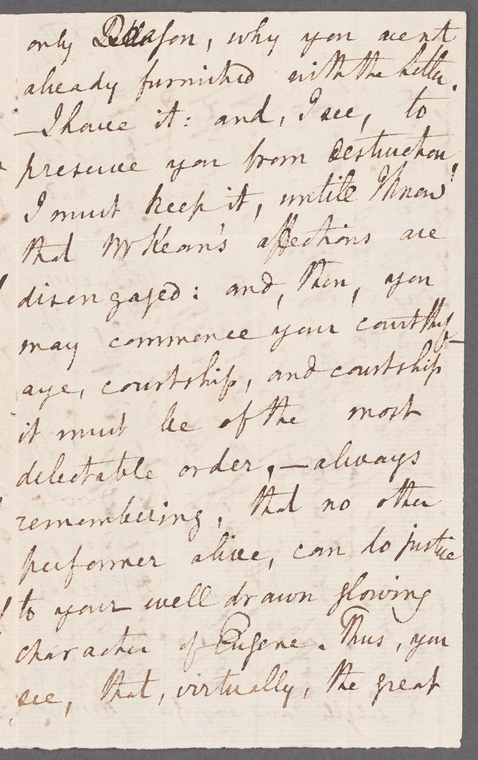 only Reason, why you went
already furnished with the letter.
—I have it: and, I see, to
preserve you from destruction,
I must keep it, untill I know
that Mr Kean's affections are
disengaged: and, then, you
may commence your courtship—
aye, courtship, and courtship
it must be of the most
delectable order,—always
remembering, that no other
performer alive, can do justice
to your well drawn glowing
character of Eugene. Thus, you
see, that, virtually, the great